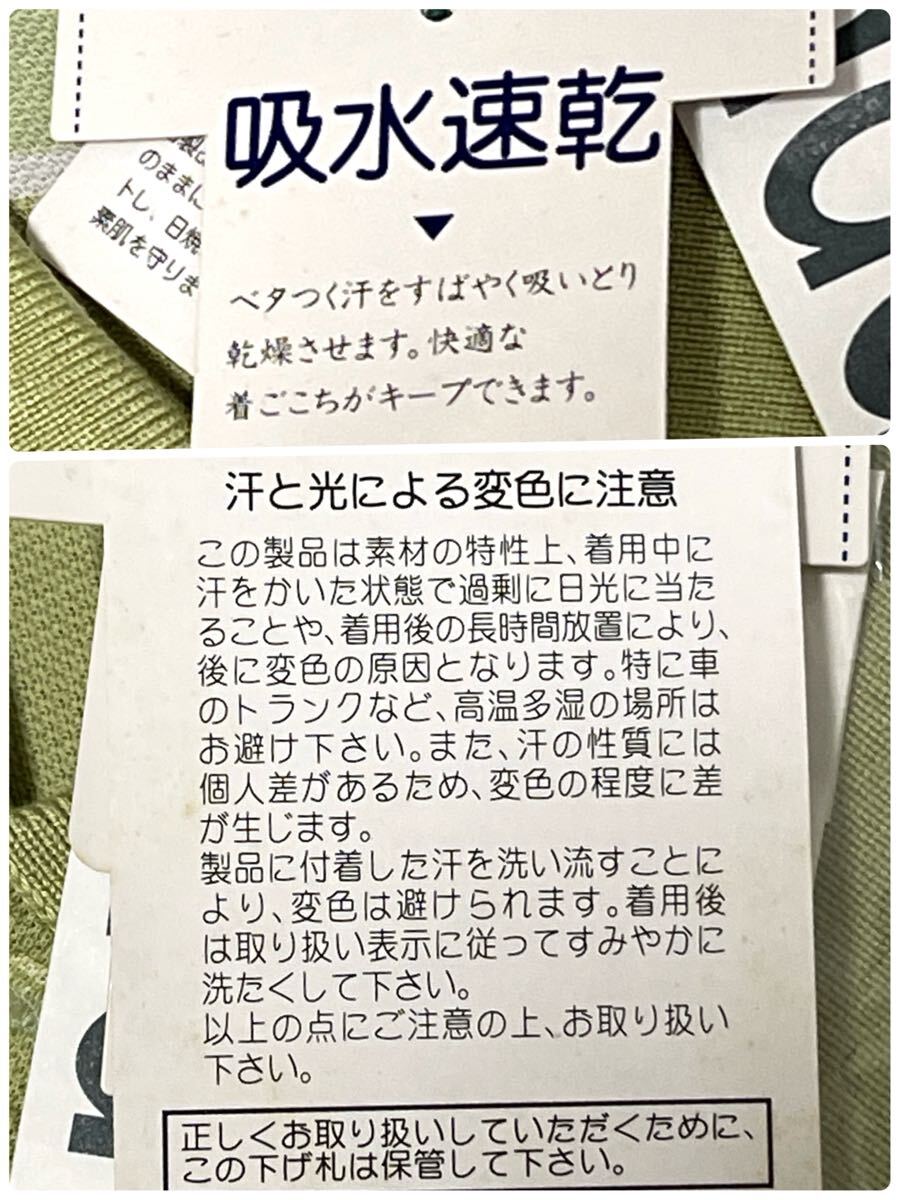 吸水速乾
▼
ベタつく汗をすばやく吸いとり
乾燥させます。快適な
着ごこちがキープできます。
のままに
トレ、日焼
素肌を守りま
汗と光による変色に注意
この製品は素材の特性上、着用中に
汗をかいた状態で過剰に日光に当た
ることや、着用後の長時間放置により、
後に変色の原因となります。特に車
のトランクなど、高温多湿の場所は
お避け下さい。また、汗の性質には
個人差があるため、変色の程度に差
が生じます。
製品に付着した汗を洗い流すことに
より、変色は避けられます。着用後
は取り扱い表示に従ってすみやかに
洗たくして下さい。
以上の点にご注意の上、お取り扱い
下さい。
正しくお取り扱いしていただくために、
この下げ札は保管して下さい。